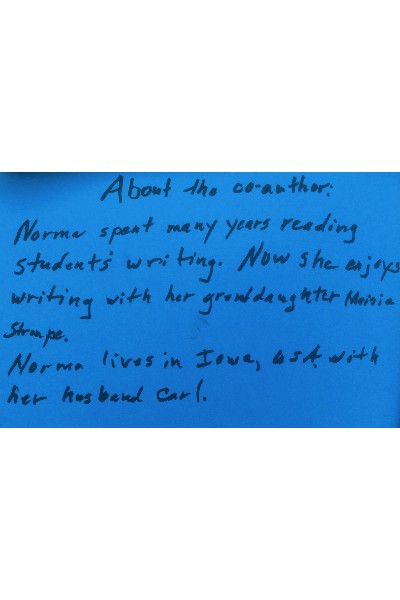 About the co-author:
Norma spent many years reading
students' writing. Now she enjoys
writing with her granddaughter
Norma lives in Iowa, USA. with
her husband Carl.